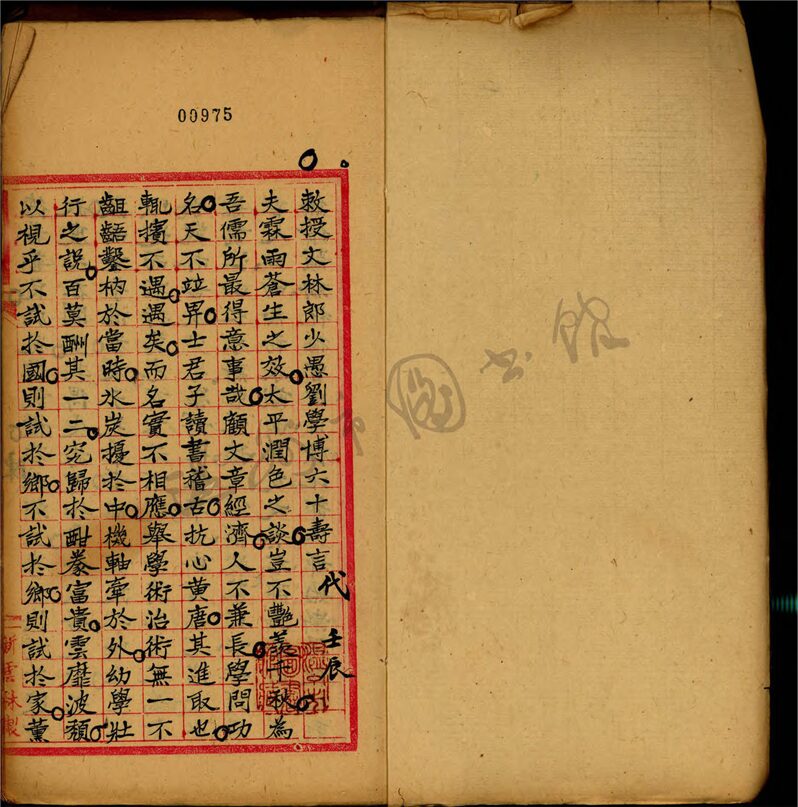 00975
敕授文林郎少愚劉學博六十壽言 代 壬辰
夫霖雨蒼生之效太平潤色之談豈不艷羡千秋為
吾儒所最得意事哉顧文章經濟人不兼長學問功
名天不竝畀士君子讀書稽古抗心黄唐其進取也
輒擯不遇遇矣而名實不相應舉學術治術無一不
齟齬鑿枘於當時氷炭擾於中機軸牽於外幼學壯
行之説百莫酬其一二究歸於酣豢富貴雲靡波頽
以視乎不試於國則試於鄉不試於鄉則試於家薰